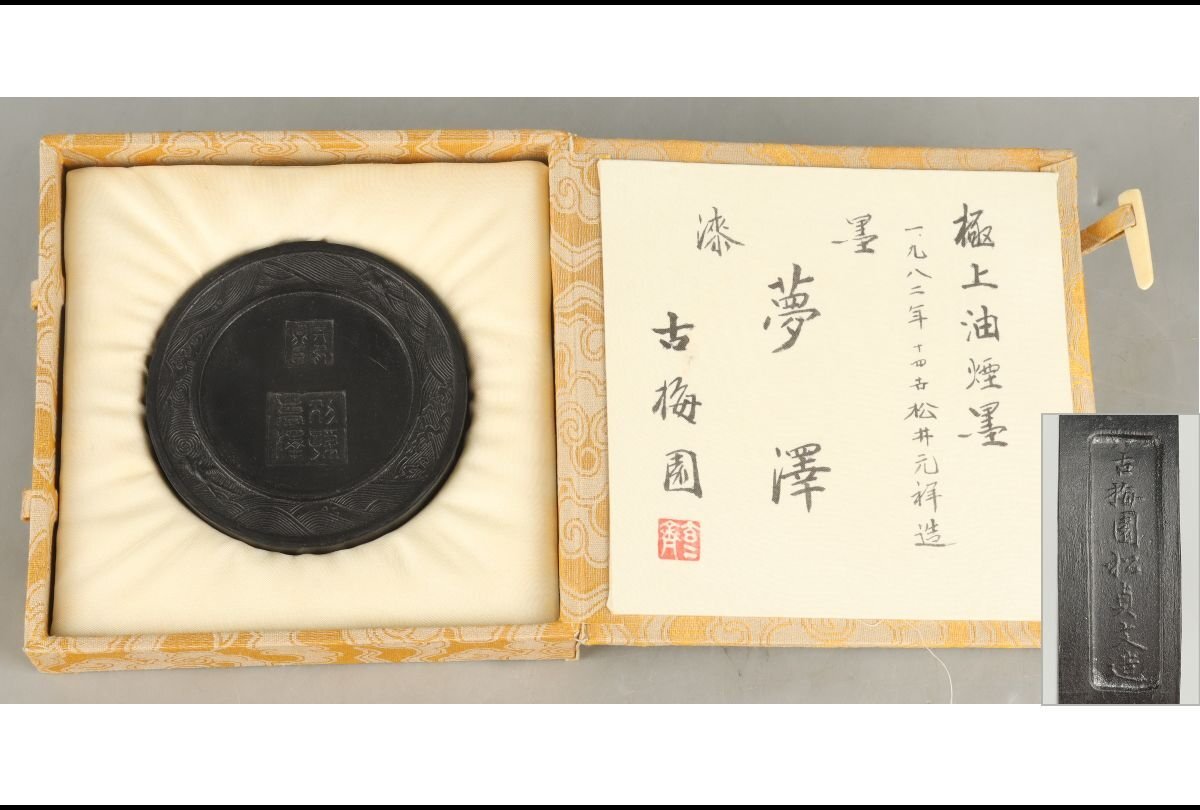 極上油煙墨
一九八二年 十四世松井元祥造
墨
夢澤
漆
古梅園
古梅園松貞文造